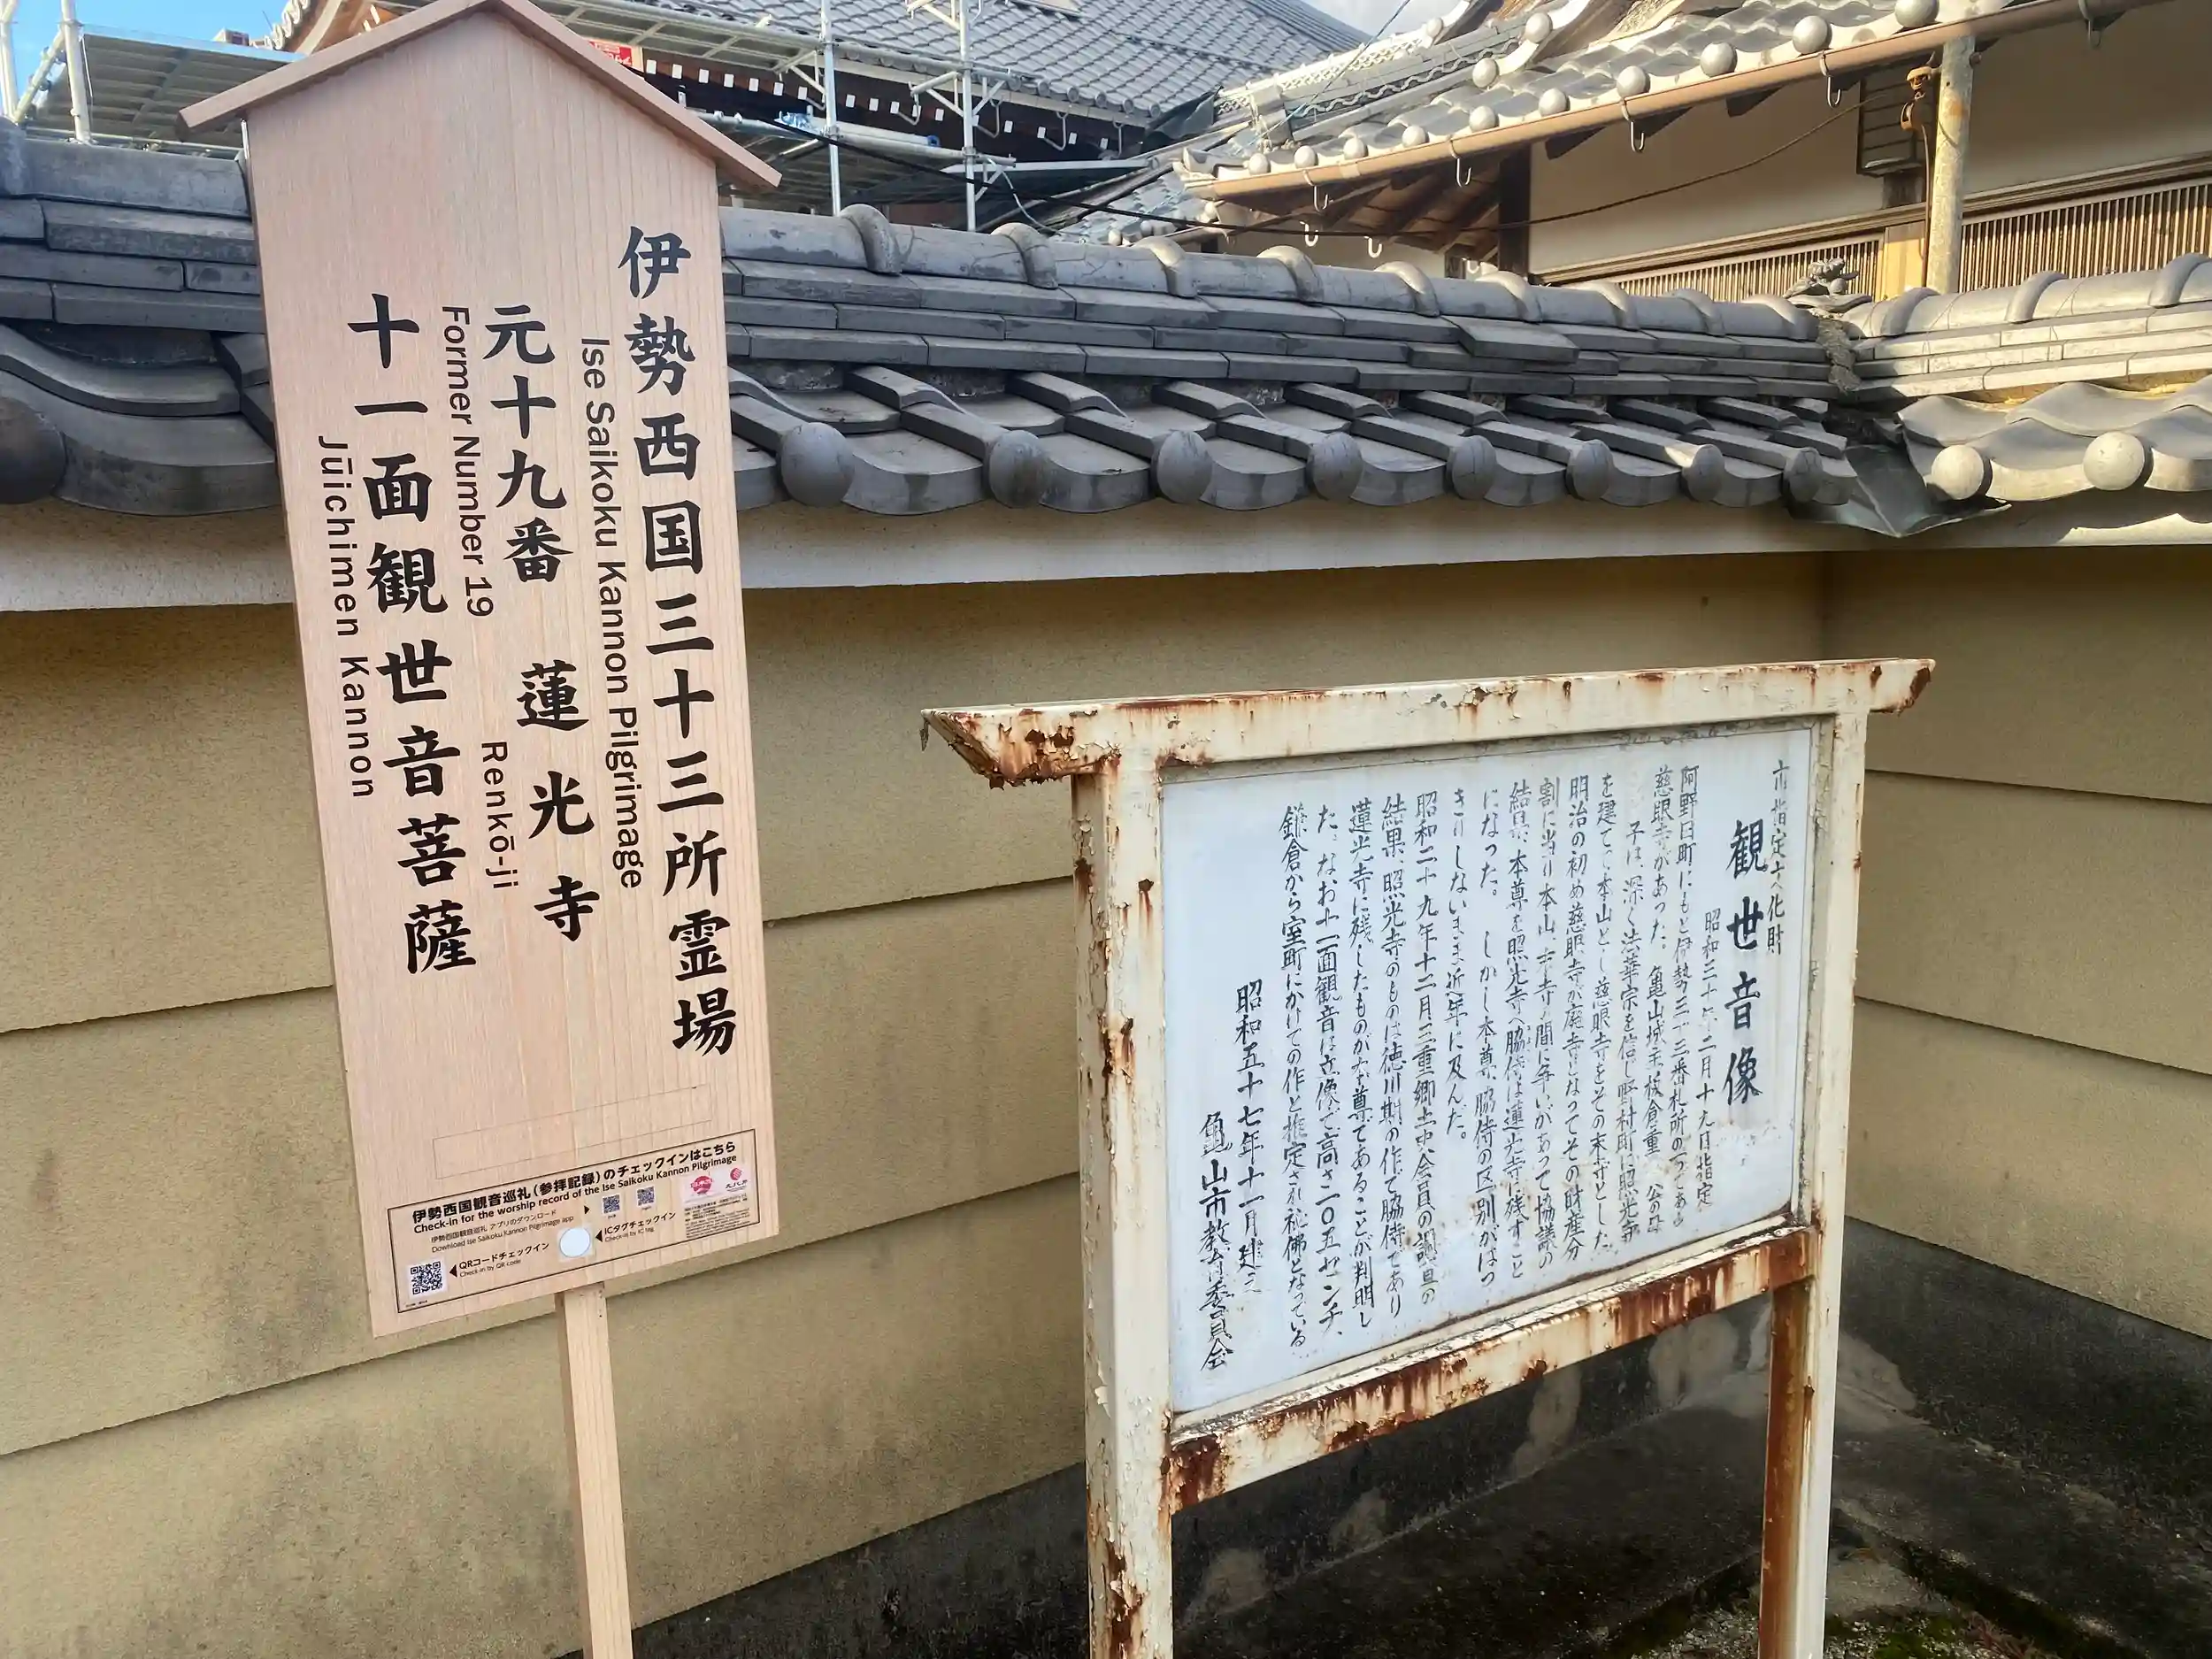 伊勢西国三十三所霊場
Ise Saikoku Kannon Pilgrimage
元十九番 蓮光寺
Former Number 19 Renkō-ji
十一面観世音菩薩
Jūichimen Kannon
伊勢西国観音巡礼(参拝記録)のチェックインはこちら
Check-in for the worship record of the Ise Saikoku Kannon Pilgrimage
伊勢西国観音巡礼 アプリのダウンロード
Download Ise Saikoku Kannon Pilgrimage app
QRコードチェックイン
Check-in by QR code
ICタグチェックイン
Check-in by IC tag
市指定文化財
観世音像
昭和三十 年二月十九日指定
阿野田町にもと伊勢三十三番札所の一つである
慈眼寺があった。亀山城主板倉重 公の母
子は、深く法華宗を信じ野村町に照光寺
を建てて本山とし慈眼寺をその末寺とした
明治の初め慈眼寺が廃寺となってその財産分
割に当り本山 末寺の間に争いがあって協議の
結果、本尊を照光寺へ脇侍は蓮光寺に残すこと
になった。 しかし本尊、脇侍の区別がはっ
きりしないまま近年に及んだ。
昭和二十九年十二月三重郷土史会員の調査の
結果、照光寺のものは徳川期の作で脇侍であり
蓮光寺に残したものが本尊であることが判明し
た。なお十一面観音は立像で高さ二〇五センチ、
鎌倉から室町にかけての作と推定され秘佛となっている
昭和五十七年十一月建之
亀山市教育委員会